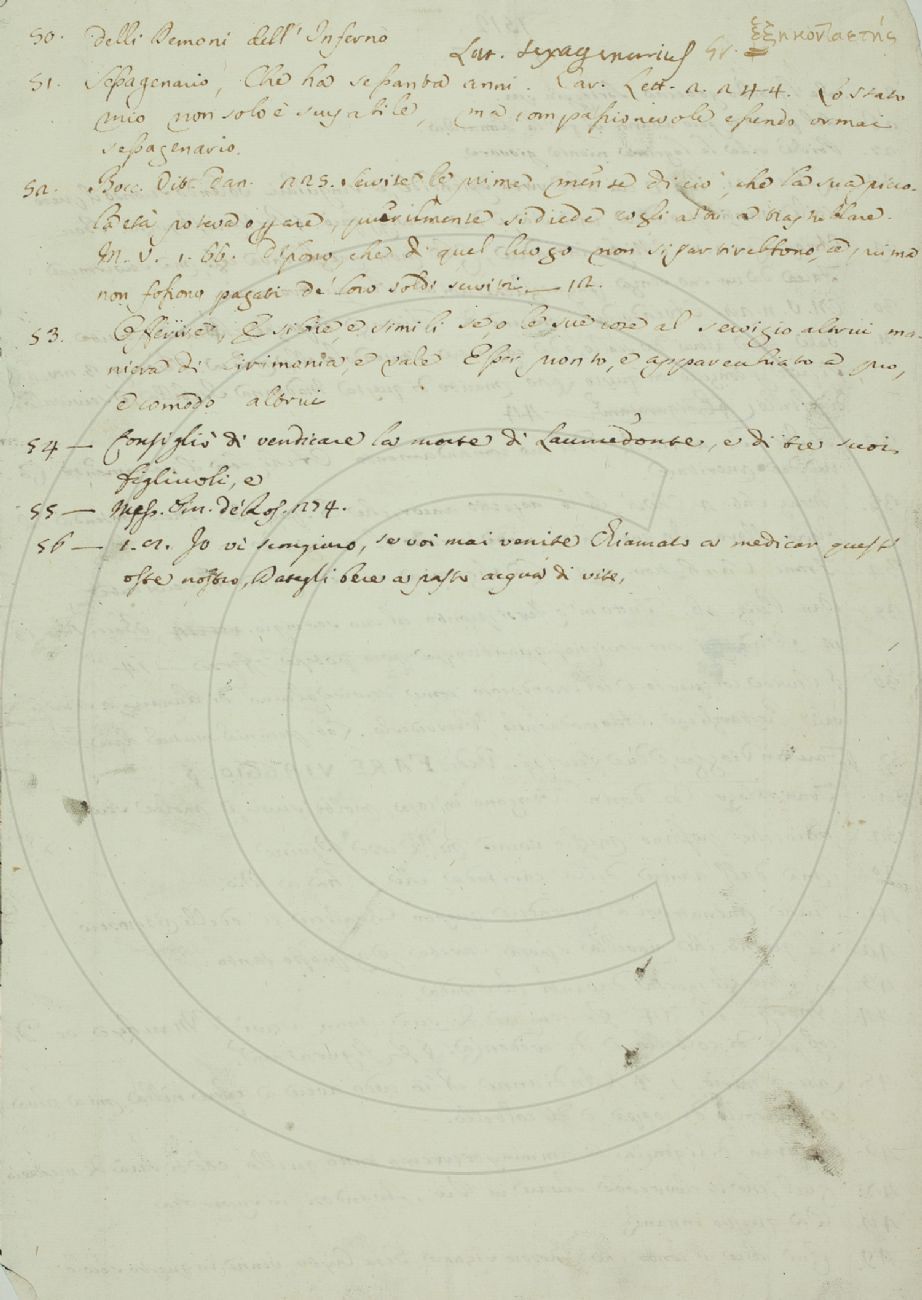 50. delli Demoni dell' Inferno
Lat. sexagenarius Gr. ἑξηκονταετής
51. Sessagenario, Che ha sessanta anni. Car. Lett. 2. 244. Lo stato
mio non solo è scusabile, ma compassionevole essendo ormai
sessagenario.
52. Bocc. Vit. Dan. 225. Servite le prime mense di ciò, che la sua picco-
la età poteva, puerilmente si diede cogli altri a trastullare.
M. V. 1. 66. Dissono, che di quel luogo non si partirebbono, e prima
non fossono pagati de' loro soldi serviti. — 12.
53. e simili se o le sue cose al servigio altrui ma-
niera di Cirimonia, e vale Esser pronto, e apparecchiato a pro,
e comodo altrui
54 — Consigliò di vendicare la morte di Laumedonte, e di tre suoi
figliuoli, e
55 — Mess. Cin. de' Ros. 124.
56 — 1. 2. Io vi scongiuro, se voi mai venite chiamato a medicar quest'
oste nostro, Dategli bere a pasto acqua di vite,